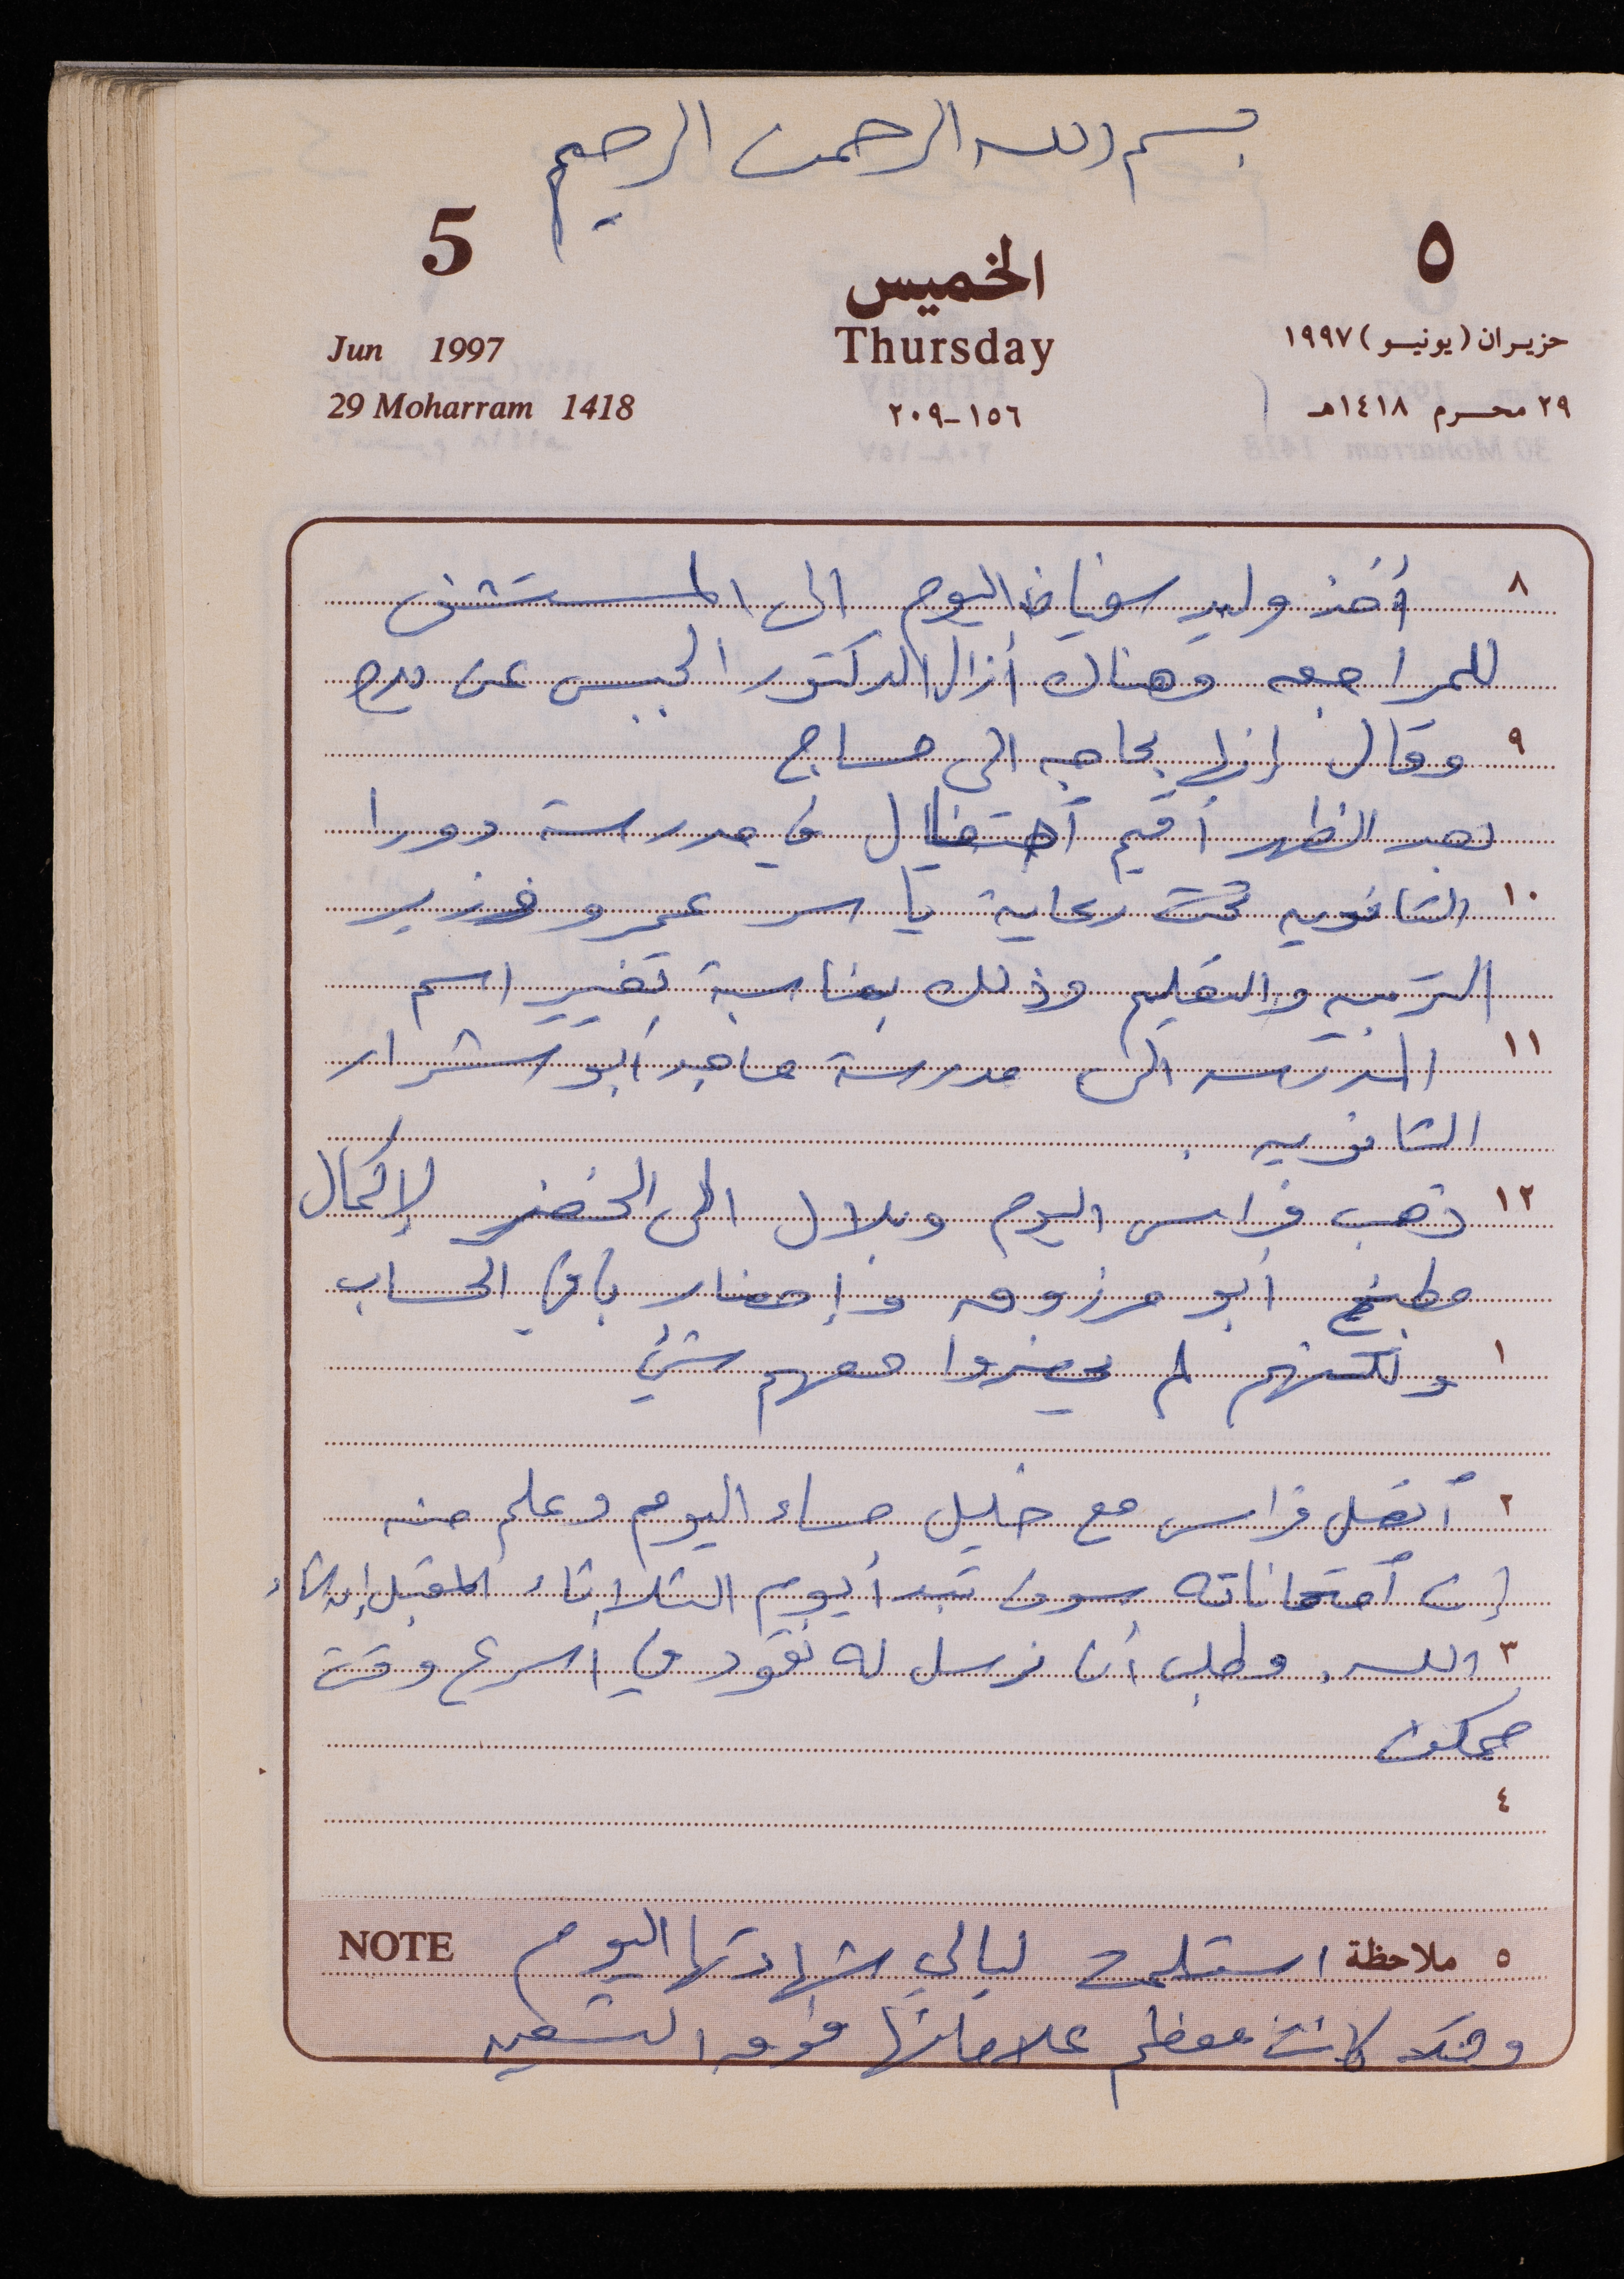 بسم الله الرحمن الرحيم
5 الخميس ٥
Jun 1997 Thursday حزيران (يونيو) ١٩٩٧
29 Moharram 1418 ١٥٦-٢٠٩ ٢٩ محرم ١٤١٨هـ
٨ أخذ وليد سفيان اليوم الى المستشفى
للمراجعه وهناك أزال الدكتور الجبس عن
٩ وقال إنها بحاجه الى مساج
بعد الظهر أقيم أحتفال في مدرسة دورا
١٠ الثانويه تحت رعاية ياسر عمرو وزير
التربيه والتعليم وذلك بمناسبة تغيير اسم
١١ المدرسه الى مدرسة ماجد ابو شرار
الثانويه .
١٢ ذهب فراس اليوم وبلال الى الخضر لإكمال
مطبخ ابو مرزوق وإحضار باقي الحساب
١ ولكنهم لم يحضروا معهم شئ
٢ أتصل فراس مع خليل مساء اليوم وعلم منه
إن أمتحاناته سوف تبدأ يوم الثلاثاء المقبل إن شاء
٣ الله. وطلب أن نرسل له نقود في أسرع وقت
ممكن
٤
٥ ملاحظة استلمت ليالي شهادتها اليوم NOTE
وقد كانت معظم علاماتها فوق التسعين